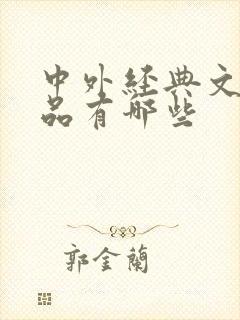 中外經典文
品有哪些
郭金蘭